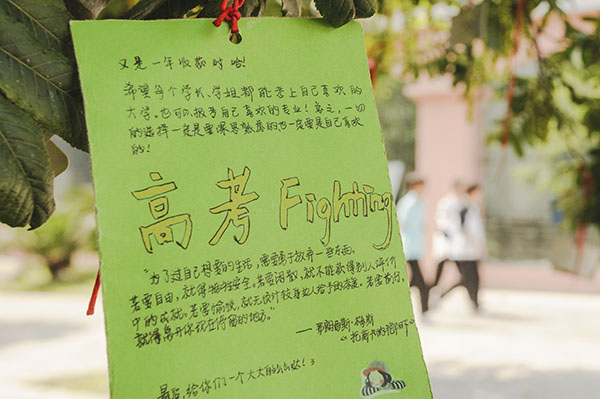 又是一年收获时哈!
希望每个学长、学姐都能考上自己喜欢的
大学。也可以报考自己喜欢的专业!总之,一切
的选择一定是要深思熟虑的也一定要是自己喜欢
的!
高考 Fighting
"为了过自己想要的生活,需要勇于放弃一些东西。
若要自由,就得牺牲安全。若要闲散,就不能获得别人评价
中的成就。若要愉悦,就无须计较身边人给予的态度。若要前行,
就得离开你现在停留的地方。"
—— 梅斯
最后,给你们一个大大的么么哒!:3